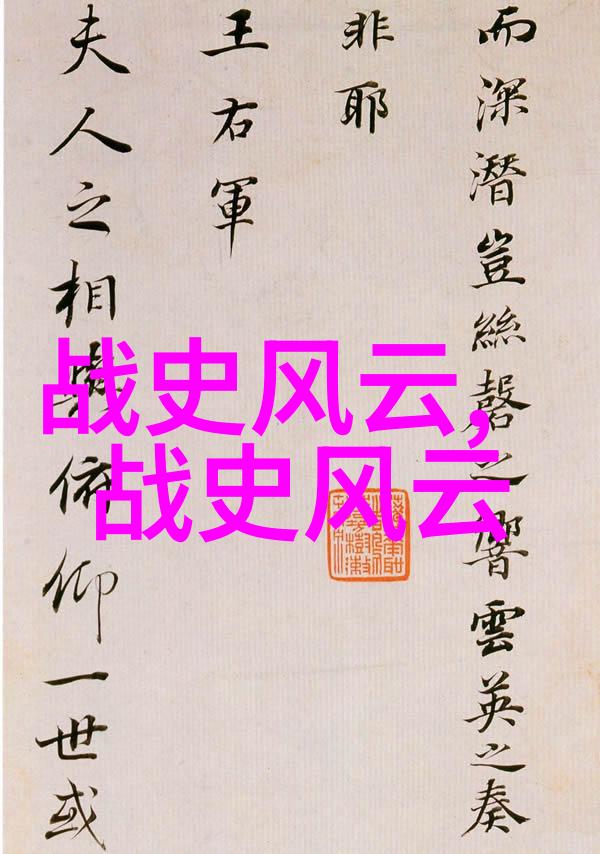 而深潛豈絲磬之響雲英之奏
非耶
王右軍
夫人之相與俯仰一世或
战史风云,
战史风云